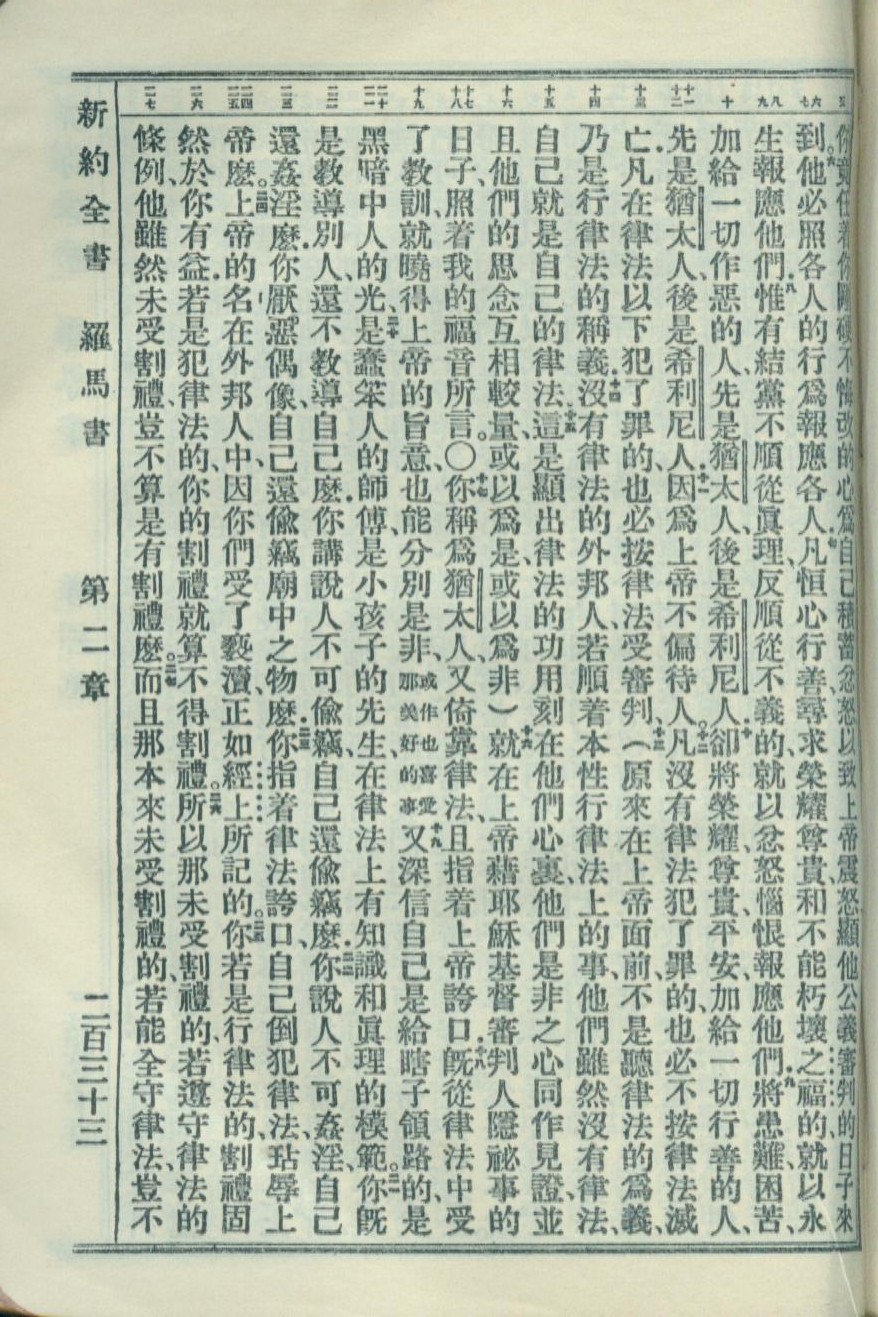 你竟任着你剛硬不悔改的心、爲自己積蓄忿怒、以致上帝震怒、顯他公義審判的日子來
到。他必照各人的行爲報應各人、凡恒心行善、尋求榮耀尊貴、和不能朽壞之福的、就以永
生報應他們、惟有結黨不順從眞理、反順從不義的、就以忿怒惱恨報應他們、將患難困苦、
加給一切作惡的人、先是猶太人、後是希利尼人、卻將榮耀尊貴平安、加給一切行善的人、
先是猶太人、後是希利尼人、因爲上帝不偏待人。凡沒有律法犯了罪的、也必不按律法滅
亡、凡在律法以下犯了罪的、也必按律法受審判、(原來在上帝面前、不是聽律法的爲義、
乃是行律法的稱義、沒有律法的外邦人、若順着本性行律法上的事、他們雖然沒有律法、
自己就是自己的律法、這是顯出律法的功用、刻在他們心裏、他們是非之心同作見證、並
且他們的思念互相較量、或以爲是、或以爲非)就在上帝藉耶穌基督審判人隱祕事的
日子、照着我的福音所言。〇你稱爲猶太人、又倚靠律法、且指着上帝誇口、旣從律法中受
了教訓、就曉得上帝的旨意、也能分別是非、或作也喜愛那美好的事又深信自己是給瞎子領路的、是
黑暗中人的光、是蠢笨人的師傅、是小孩子的先生、在律法上有知識和眞理的模範。你旣
是教導別人、還不教導自己麽、你講說人不可偷竊、自己還偷竊麽、你說人不可姦淫、自己
還姦淫麽、你厭惡偶像、自己還偷竊廟中之物麽、你指着律法誇口、自己倒犯律法、玷辱上
帝麽。上帝的名在外邦人中、因你們受了褻瀆、正如經上所記的。你若是行律法的、割禮固
然於你有益、若是犯律法的、你的割禮就算不得割禮。所以那未受割禮的、若遵守律法的
條例、他雖然未受割禮、豈不算是有割禮麽。而且那本來未受割禮的、若能全守律法、豈不
新約全書 羅馬書 第二章 二百三十三